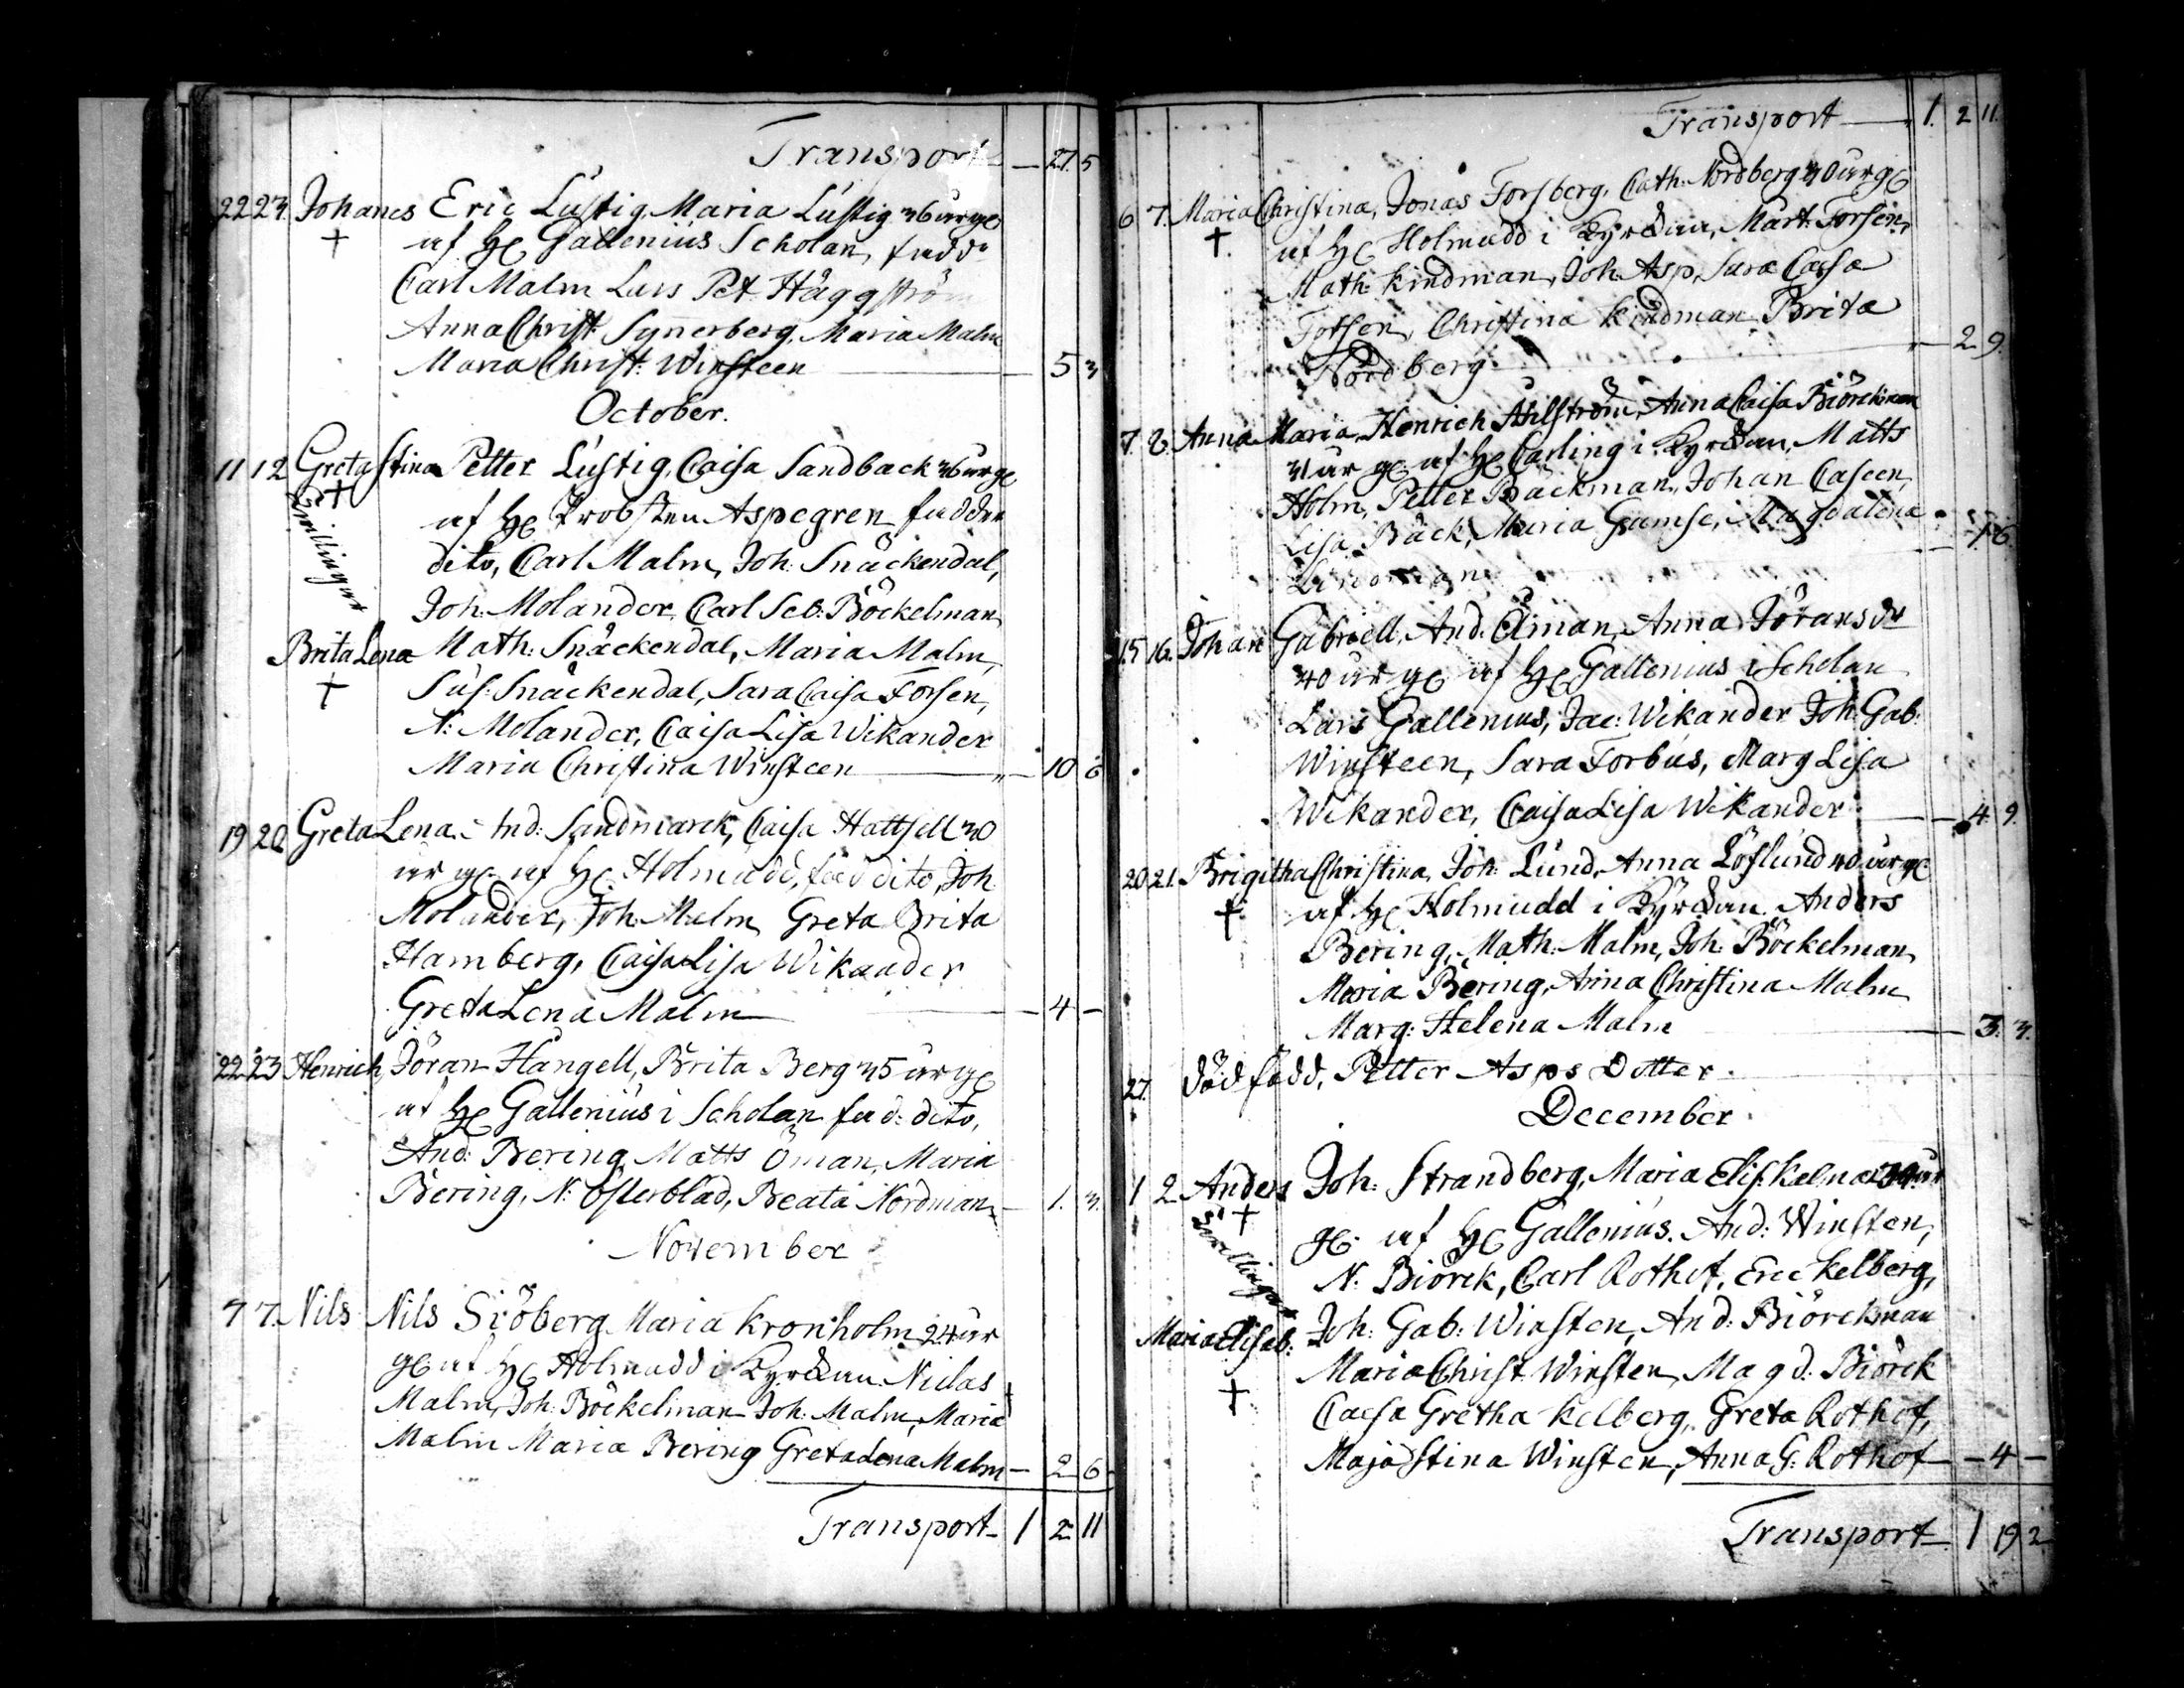 Transport — 27 5
22 23. Johanes Eric Lustig, Maria Lustig 36 år gl
af H. Gallenius Scholan, fadd:
Carl Malm Lars Pet. Häggström
Anna Christ: Synnerberg, Maria Malm
Maria Christ: Winsteen — 5 3
October.
11 12 Greta Stina Petter Lustig, Caisa Sandback 36 år gl
af H. Probsten Aspegren fadder
Tvillingar
dito, Carl Malm, Joh: Snäckendal,
Joh: Molander, Carl Seb: Böckelman,
Brita Lena Math: Snäckendal, Maria Malm,
Sus: Snäckendal, Sara Caisa Forsen,
N: Molander, Caisa Lisa Wikander
Maria Christina Winsteen — 10 6
19 20 Greta Lena And: Sandmarck, Caisa Hattsell 30
år gl af H. Holmudd, fad dito, Joh:
Molander, Joh: Malm Greta Brita
Hamberg, Caisa Lisa Wikander
Greta Lena Malm — 4 —
22 23 Henrich, Jöran Hangell, Brita Berg 35 år gl
af H. Gallenius i Scholan fad: dito,
And: Bering Matts Öman, Maria
Bering, N: Österblad, Beata Nordman — 1. 3.
November
7. Nils Nils Siöberg Maria Kronholm 24 år
gl af H. Holmudd i Kyrckan Niclas
Malm, Joh: Böckelman Joh: Malm, Maria
Malm Maria Bering Greta Lena Malm — 2 6
Transport — 1 2 11
Transport — 1. 2 11.
6 7. Maria Christina, Jonas Forsberg, Cath: Nordberg 30 år gl
af H. Holmudd i Kyrckan, Mårt: Forsen,
Math: Kindman, Joh: Asp, Sara Caisa
Forsen, Christina Kindman, Brita
Nordberg — 2 9.
7. 8. Anna Maria, Henrich Ahlström, Anna Caisa Biörckman
31 år gl. af H. Carling i Kyrckan, Matts
Holm, Petter Bäckman, Johan Caseen,
Lisa Bäck, Maria Gamse, Magdalena — 1. 6.
15 16. Johan Gabriell, And: Öman, Anna Jörans dr
40 år gl af H. Gallenius i Scholan
Lars Gallenius, Jac: Wikander Joh: Gab:
Winsteen, Sara Forbus, Marg Lisa
Wikander, Caisa Lisa Wikander — 4. 9.
20 21. Brigitha Christina, Joh: Lund, Anna Löflund 40 år gl
af H. Holmudd i Kyrckan Anders
Bering, Math: Malm, Joh: Böckelman,
Maria Bering, Anna Christina Malm
Marg: Helena Malm — 3. 3.
27. död född, Petter Asps Dotter —
December
1 2 Anders Joh: Strandberg, Maria Elis: Kelman år
gl. af H. Gallenius. And: Winsten,
Tvillingar
N: Biörck, Carl Rothof, Eric Kelberg,
Maria Elisab: Joh: Gab: Winsten, And: Biörckman
Maria Christ: Winsten, Magd: Biörck
Caisa Gretha Kelberg, Greta Rothof,
Maja Stina Winsten, Anna G: Rothof — 4 —
Transport — 1 19 2